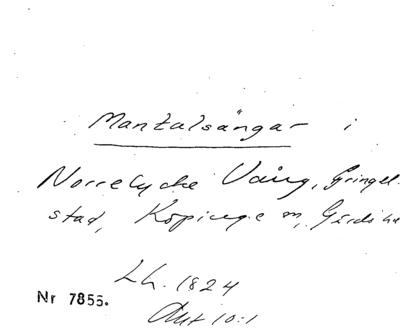 Mantalsängar i
Norrelycke Vång, Gringel-
stad, Köpinge m, Gärds hd
Lh. 1824
Nr 7855.
Akt 10:1